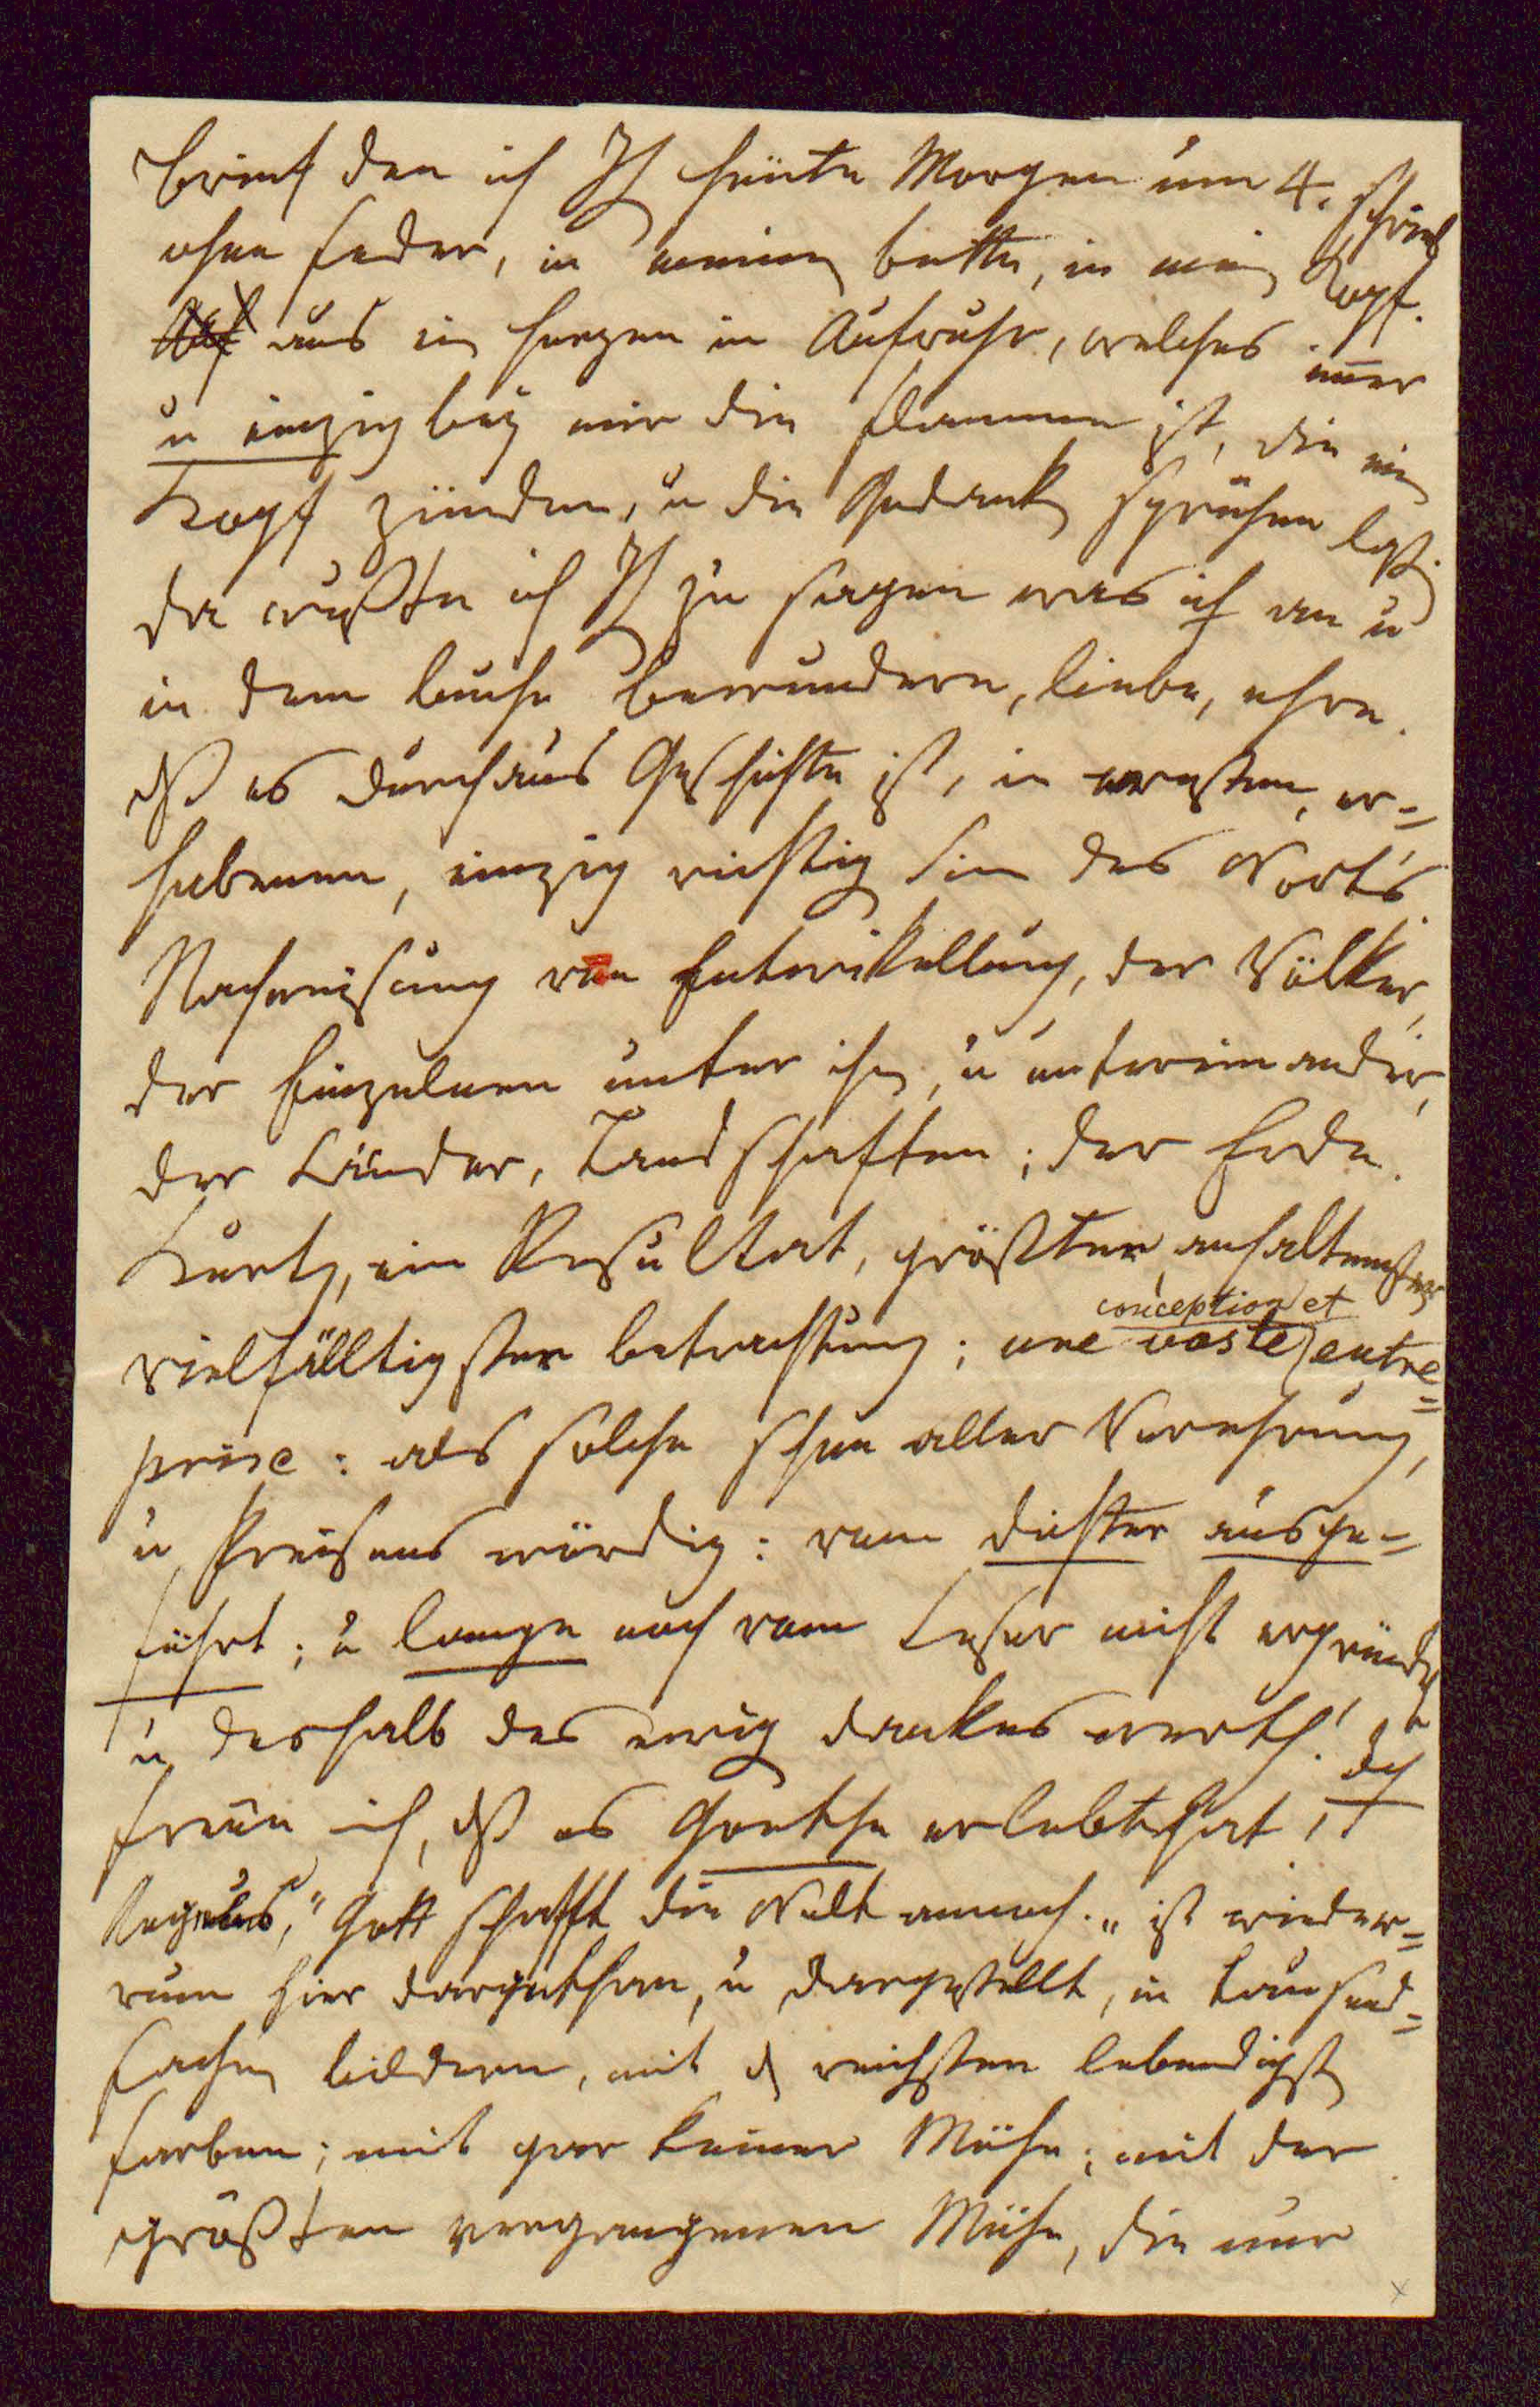 Brief den ich Ih heüte Morgen um 4. schrieb
ohne feder, in meinem bette, in mein Kopf.
aus ein herzen in Aufruhr, welches im̅er
u einzig bey mir die flamme ist, die mein
Kopf zünden, u die Gedanken sprühen läßt.
da wußte ich Ih zu sagen was ich an u
in dem buche bewundere, liebe, ehre.
dß es durchaus Geschichte ist, in ernstem, er=
habenem, einzig richtigen Sinn des Worts.
Nachweisung von Entwikellung, der Völker,
der Einzelnen unter ihnen, u untereinander,
der Länder, Landschaften; der Erde.
Kurtz, ein Resultat, größter, anhaltenster
vielfälltigster betrachtung; une vaste conception et entre=
prise: als solche schon aller Verehrung,
u Preisens würdig: vom dichter ausge=
führt; u lange noch vom Leser nicht ergründet
u deshalb des ewig dankes werth! doch
freüe ich, dß es Goethe erlebt hat!
"Gott schafft die Welt annoch." ist wieder=
rum hier dargethan, u dargestellt, in tausend=
fachen bildern, mit d reichsten lebendigsten
farben; mit gar keiner Mühe; mit der
größten vergangenen Mühe, die nur